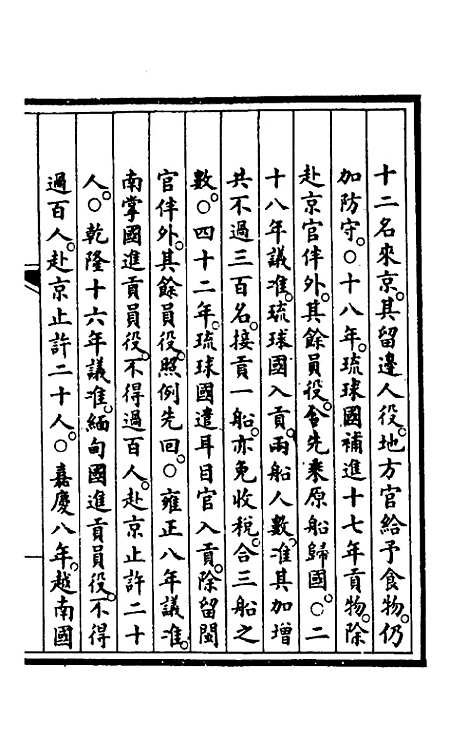 十二名來京。其留邊人役。地方官給予食物。仍
加防守。○十八年。琉球國補進十七年貢物。除
赴京官伴外。其餘員役。令先乘原船歸國。○二
十八年議准。琉球國入貢。兩船人數。准其加增
共不過三百名。接貢一船。亦免收稅。合三船之
數。○四十二年。琉球國遣耳目官入貢。除留閩
官伴外。其餘員役。照例先回。○雍正八年議准。
南掌國進貢員役。不得過百人。赴京止許二十
人。○乾隆十六年議准。緬甸國進貢員役。不得
過百人。赴京止許二十人。○嘉慶八年。越南國